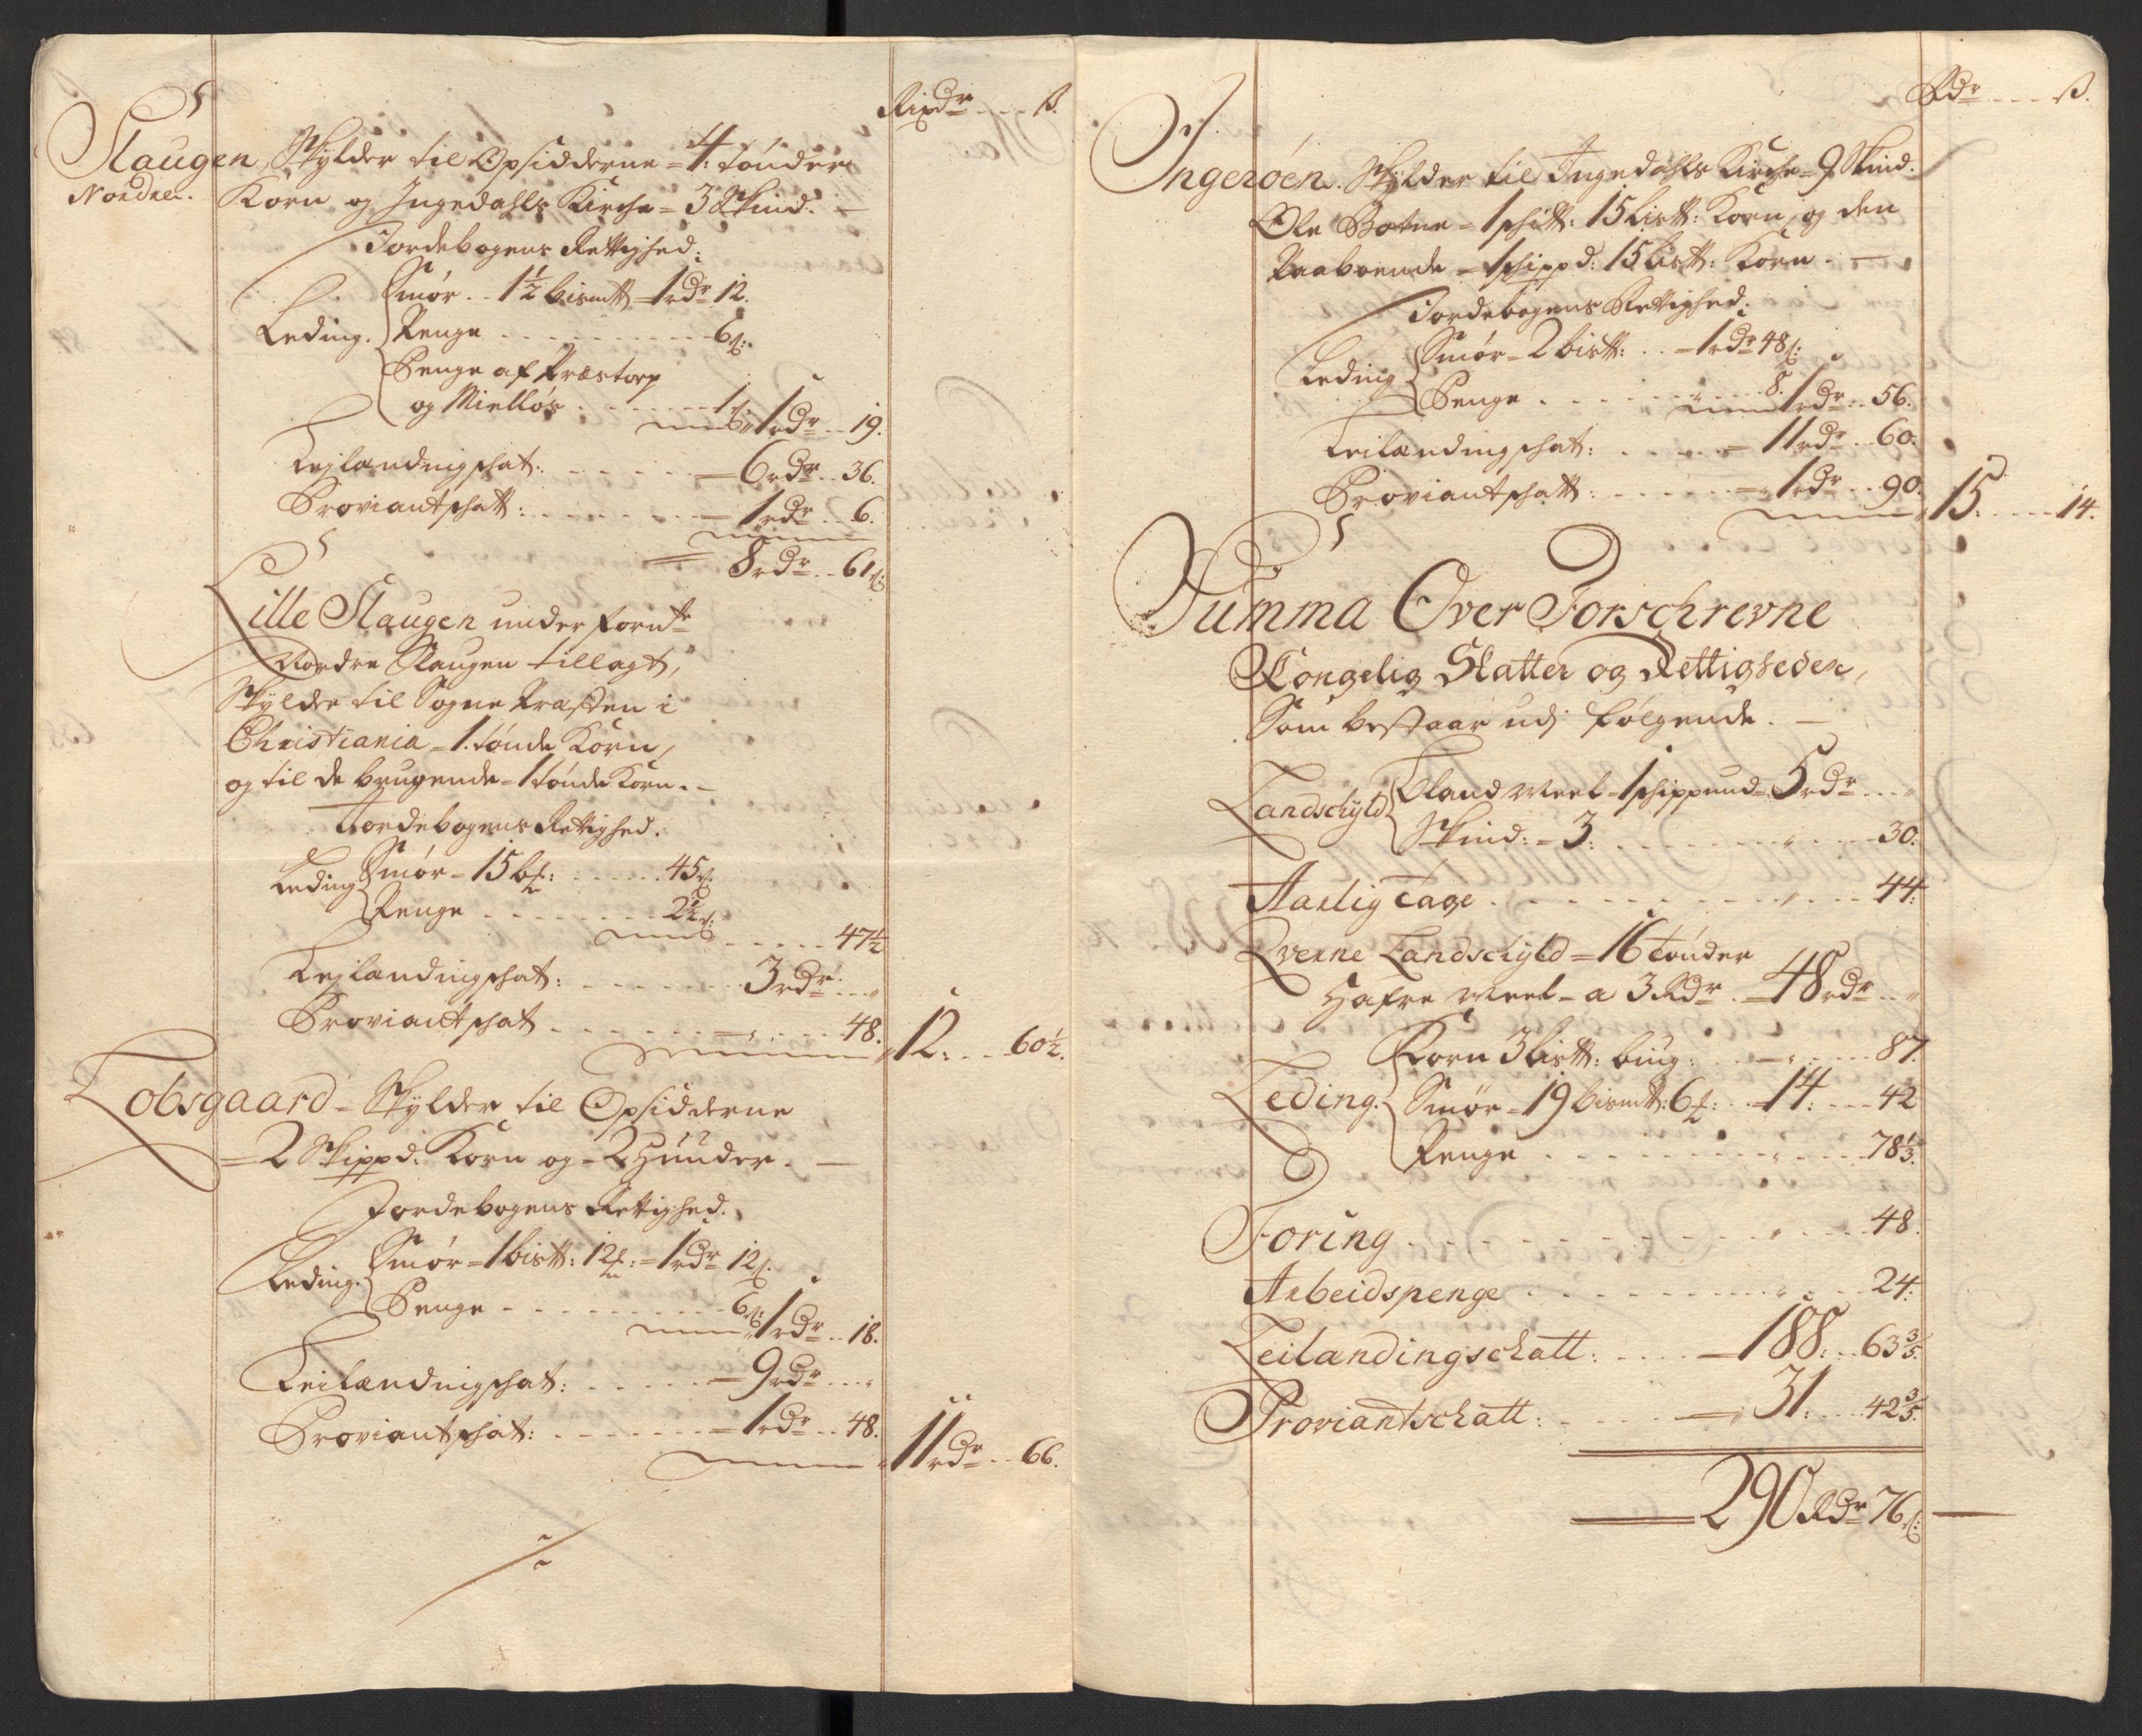 Rixdr ß.
Slaugen Skylder til Opsidderne = 4: tønder
Nordre. Korn og Ingedahls Kirche = 3 Skind. —
Jordebogens Rettighed:
Smør .. 1½ bismtt = 1 rdr 12.
Leding. Penge . . . . 6 ß:
Penge af Præstorp
og Mielløs . . . . 1 ß. 1 rdr .. 19.
Lejlandingschat: . . . = 6 rdr .. 36.
Proviantschatt: . . . = 1 rdr .. 6.
= 8 rdr .. 61 ß:
Lille Slaugen under fornte
Nordre Slaugen tillagt,
Skylder til Sogne Præsten i
Christiania = 1. tønde Korn,
og til de brugende = 1 tønde Korn. —
Jordebogens Rettighed.
Leding Smør = 15 : . . . 45 ß.
Penge . . . . 2½ ß:
. . . . 47½
Lejlandingschat: . . . . 3 rdr . . „
Proviantschat . . . . „ . . 48. 12: . . 60½.
Lobsgaard = Skylder til Opsidderne
= 2 Skippd: Korn og = 2 Huuder. —
Jordebogens Rettighed.
Leding. Smør = 1 bistt: 12 : = 1 rdr 12 ß.
Penge . . . . 6 ß: 1 rdr .. 18.
Leilændingschat: . . . = 9 rdr . . „
Proviantschat: . . . = 1 rdr .. 48. 11 rdr .. 66.
Rdr ß.
Ingerøen. Skylder til Ingedahls Kirche = 9 Skind.
Ole Botne = 1 schitt: 15 listt: Korn, og den
Paaboende = 1 schippd: 15 listt: Korn. —
Jordebogens Rettighed:
Leding Smør = 2 bistt: .. = 1 rdr 48 ß:
Penge . . . . „ . . 8. 1 rdr .. 56.
Leilændingschat: . . . = 11 rdr .. 60.
Proviantschatt: . . . = 1 rdr .. 90. 15. . . 14.
Summa Over Forschrevne
Kongelig Skatter og Rettigheder,
Som bestaar udj følgende. —
Landschyld Bland Meel = 1 schippund = 5 rdr . . „
Skind: = 3: . . . . „ . . 30.
Aarlig Tage . . . . „ . . 44.
Qverne Landschyld = 16 tønder
Hafre Meel = a 3 Rdr . = 48 rdr .. „
Korn 3 listt: biug: . . = „ . . 87.
Leding. Smør = 19 bismtt: 6 : . = 14. . . 42
Penge . . . . „ . . 78⅓.
Foring . . . . „ . . 48.
Arbeidspenge . . . . „ . . 24.
Leilandingschatt: . . . = 188: . . 63⅗.
Proviantschatt: . . . = 31: . . 42⅗.
= 290 Rdr 76 ß: —